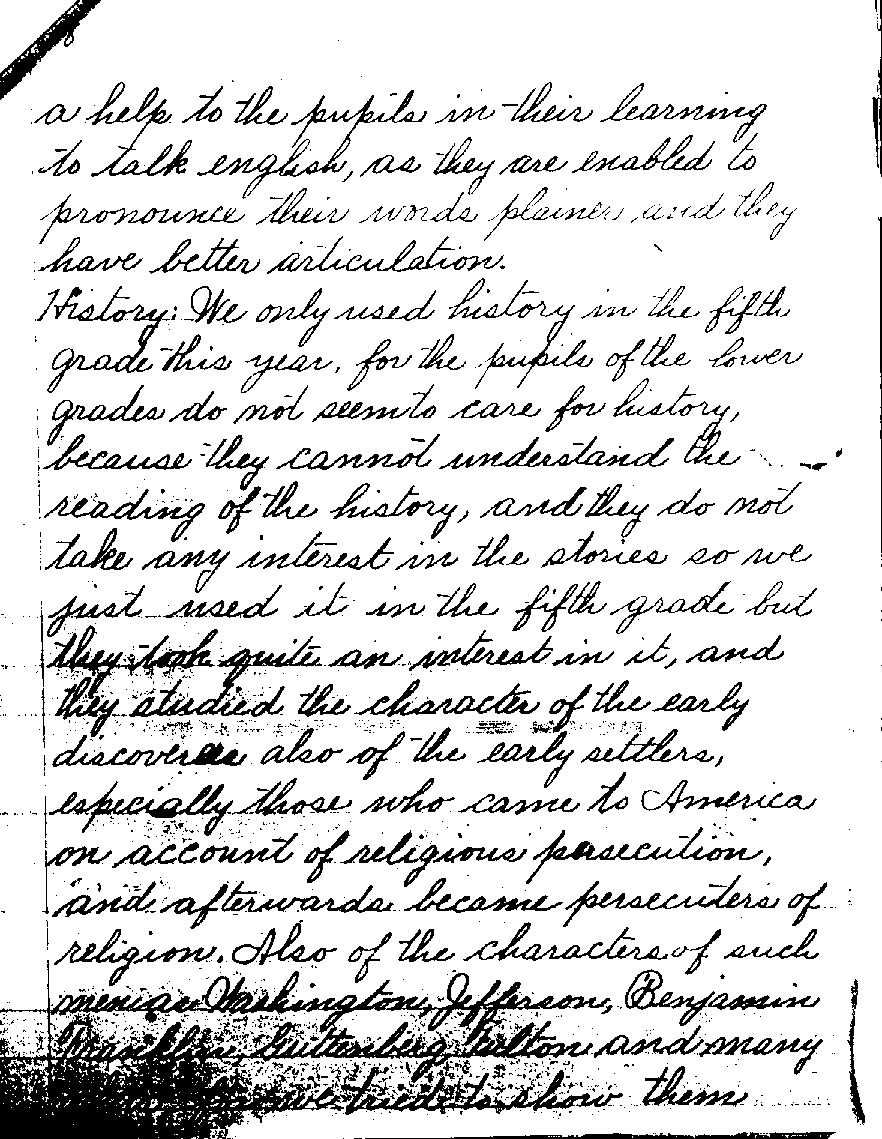 a help to the pupils in their learning
to talk english, as they are enabled to
pronounce their words plainer and they
have better articulation.
History: We only used history in the fifth
grade this year, for the pupils of the lower
grades do not seem to care for history,
because they cannot understand the
reading of the history, and they do not
take any interest in the stories so we
just used it in the fifth grade but
they took quite an interest in it, and
they studied the character of the early
discoverers also of the early settlers,
especially those who came to America
on account of religious persecution,
and afterwards became persecuters of
religion. Also of the characters of such
men as Washington, Jefferson, Benjamin
Franklin, Guttenberg, Fulton and many
we tried to show them